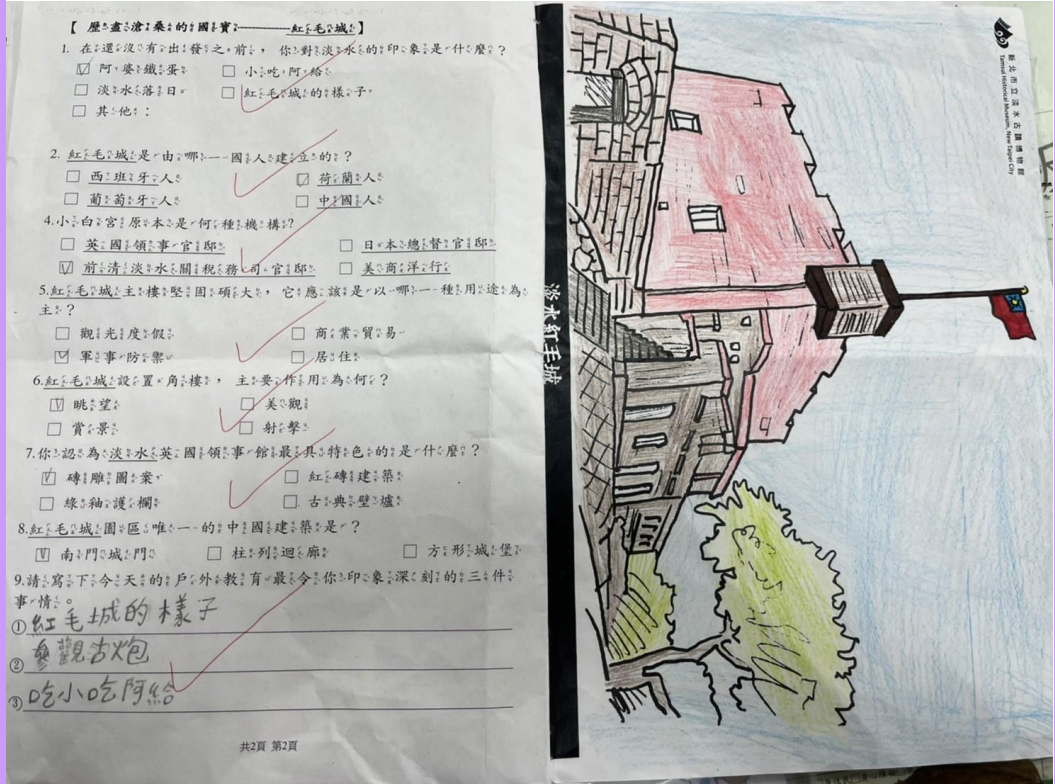 【 歷盡滄桑的國寶————紅毛城】
1. 在還沒有出發之前，你對淡水的印象是什麼？
☑ 阿婆鐵蛋 □ 小吃阿給
□ 淡水落日 □ 紅毛城的樣子
□ 其他：
2. 紅毛城是由哪一國人建立的？
□ 西班牙人 ☑ 荷蘭人
□ 葡萄牙人 □ 中國人
4.小白宮原本是何種機構?
□ 英國領事官邸 □ 日本總督官邸
☑ 前清淡水關稅務司官邸 □ 美商洋行
5.紅毛城主樓堅固碩大，它應該是以哪一種用途為
主？
□ 觀光度假 □ 商業貿易
☑ 軍事防禦 □ 居住
6.紅毛城設置角樓，主要作用為何？
☑ 眺望 □ 美觀
□ 賞景 □ 射擊
7.你認為淡水英國領事館最具特色的是什麼？
☑ 磚雕圖案 □ 紅磚建築
□ 綠釉護欄 □ 古典壁爐
8.紅毛城園區唯一的中國建築是？
☑ 南門城門 □ 柱列迴廊 □ 方形城堡
9.請寫下今天的戶外教育最令你印象深刻的三件
事情。
①紅毛城的樣子
②參觀古炮
③吃小吃阿給
共2頁 第2頁
淡水紅毛城
新北市立淡水古蹟博物館
Tamsui Historical Museum, New Taipei City